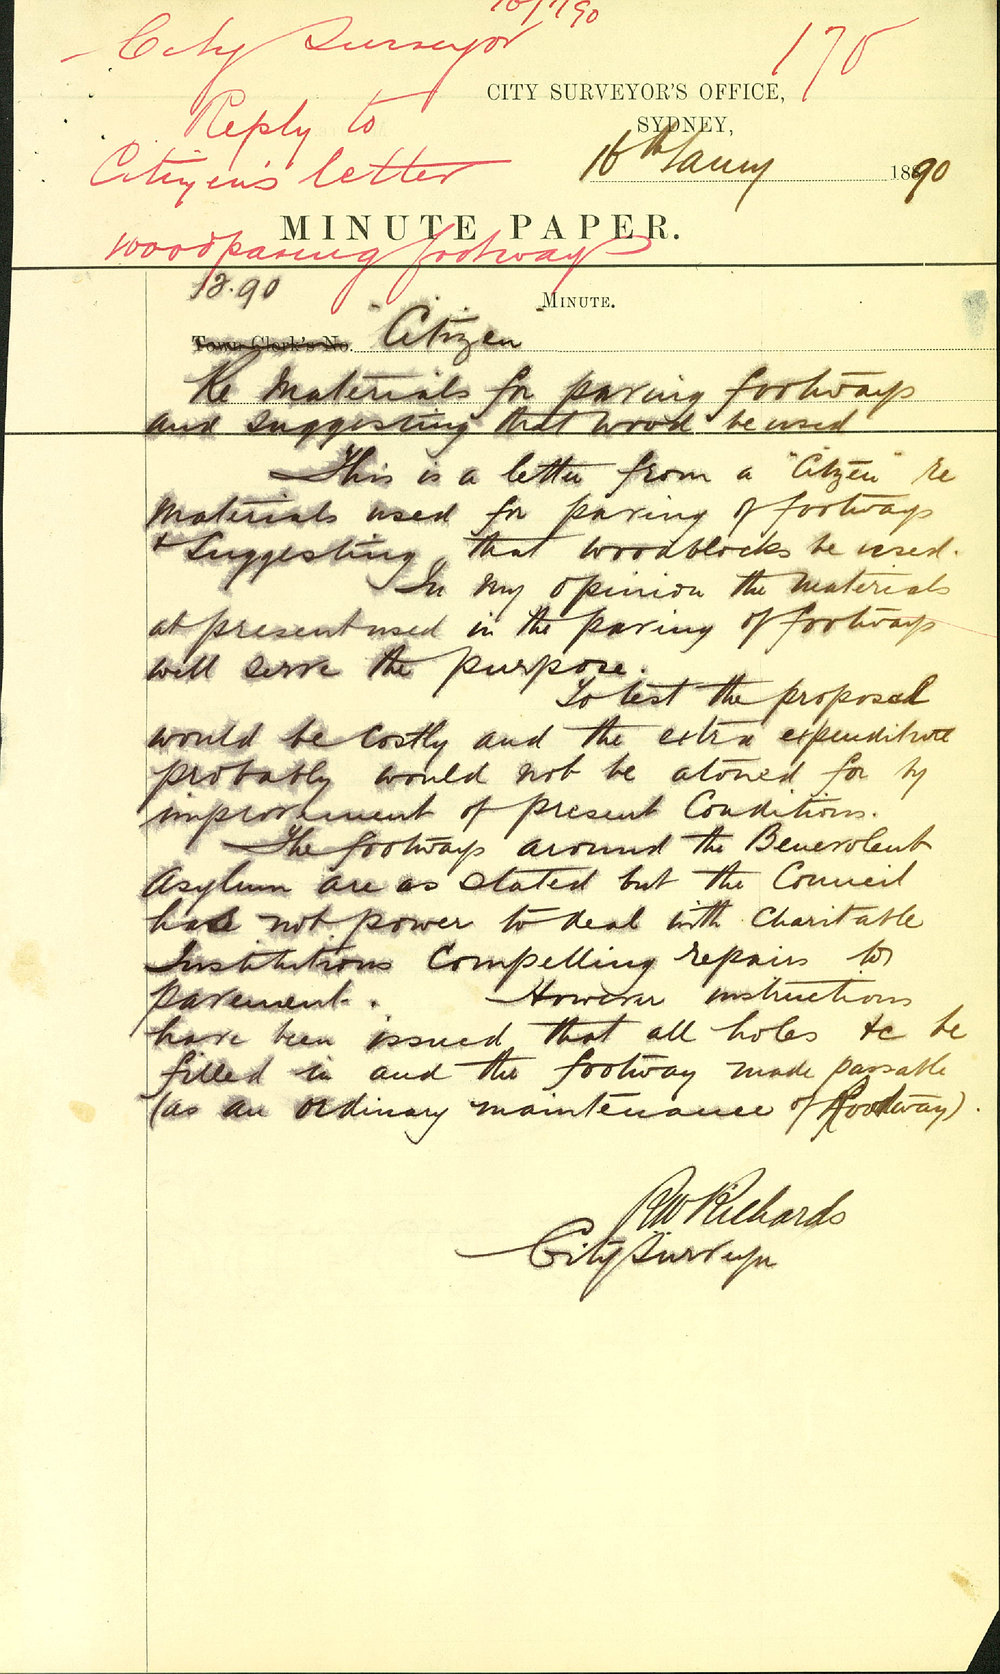 City Surveyor
170
CITY SURVEYOR'S OFFICE,
Reply to
SYDNEY,
16th Jany 1890
Citizen's letter
MINUTE PAPER.
woodpaving footways
12.90
MINUTE.
Town Clerk's No. "Citizen"
Re Materials for paving footways
and suggesting that wood be used
This is a letter from a "Citizen" re
Materials used for paving of footways
& Suggesting that woodblocks be used.
In my opinion the materials
at present used in the paving of footways
will serve the purpose.
To test the proposal
would be costly and the extra expenditure
probably would not be atoned for by
improvement of present Conditions.
The footways around the Benevolent
Asylum are as stated but the Council
has not power to deal with Charitable
Institutions Compelling repairs to
pavement. However instructions
have been issued that all holes &c be
filled in and the footway made passable
(as an ordinary maintenance of footway).
RW Richards
City Surveyor